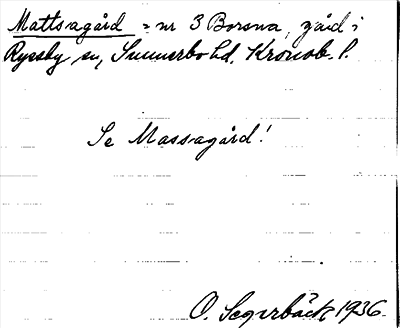 Mattsagård = nr 3 Borsna, gård i
Ryssby sn, Sunnerbo hd, Kronob. l.
Se Massagård!
O. Segerbäck 1936.